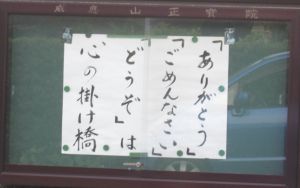 感應山正寳院
「ありがとう」
「ごめんなさい」
「どうぞ」は
心の掛け橋